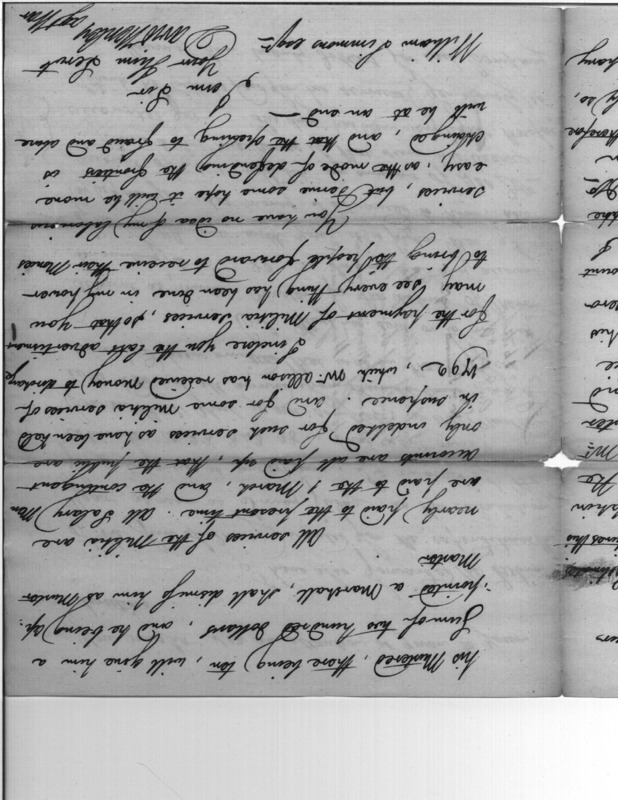 his Mustered, there being ten, will give him a
Sum of two hundred dollars, and he being ap:
:pointed a Marshall, shall dismiss him as Muster
Master
All services of the Militia are
nearly paid to the present time. All Salary Men
are paid to the 1 March, and the contingent
accounts are all paid up, that the public are
only indebted for such services as have been held
in suspence. and for some Militia services of
1792, which Mr. Allison has received money to discharge
I inclose you the last advertisement
for the payment of Militia services, so that you
may see every thing has been done in my power
to bring the people forward to receive their Monies
You have no idea of my laborious
services, but I some hope it will be more
easy, as the mode of defending the frontiers is
changed, and that the opening to fraud and abuse
will be at an end —
I am Sir
Your Hum Servt
David Henley
William Simmons esqr agt War